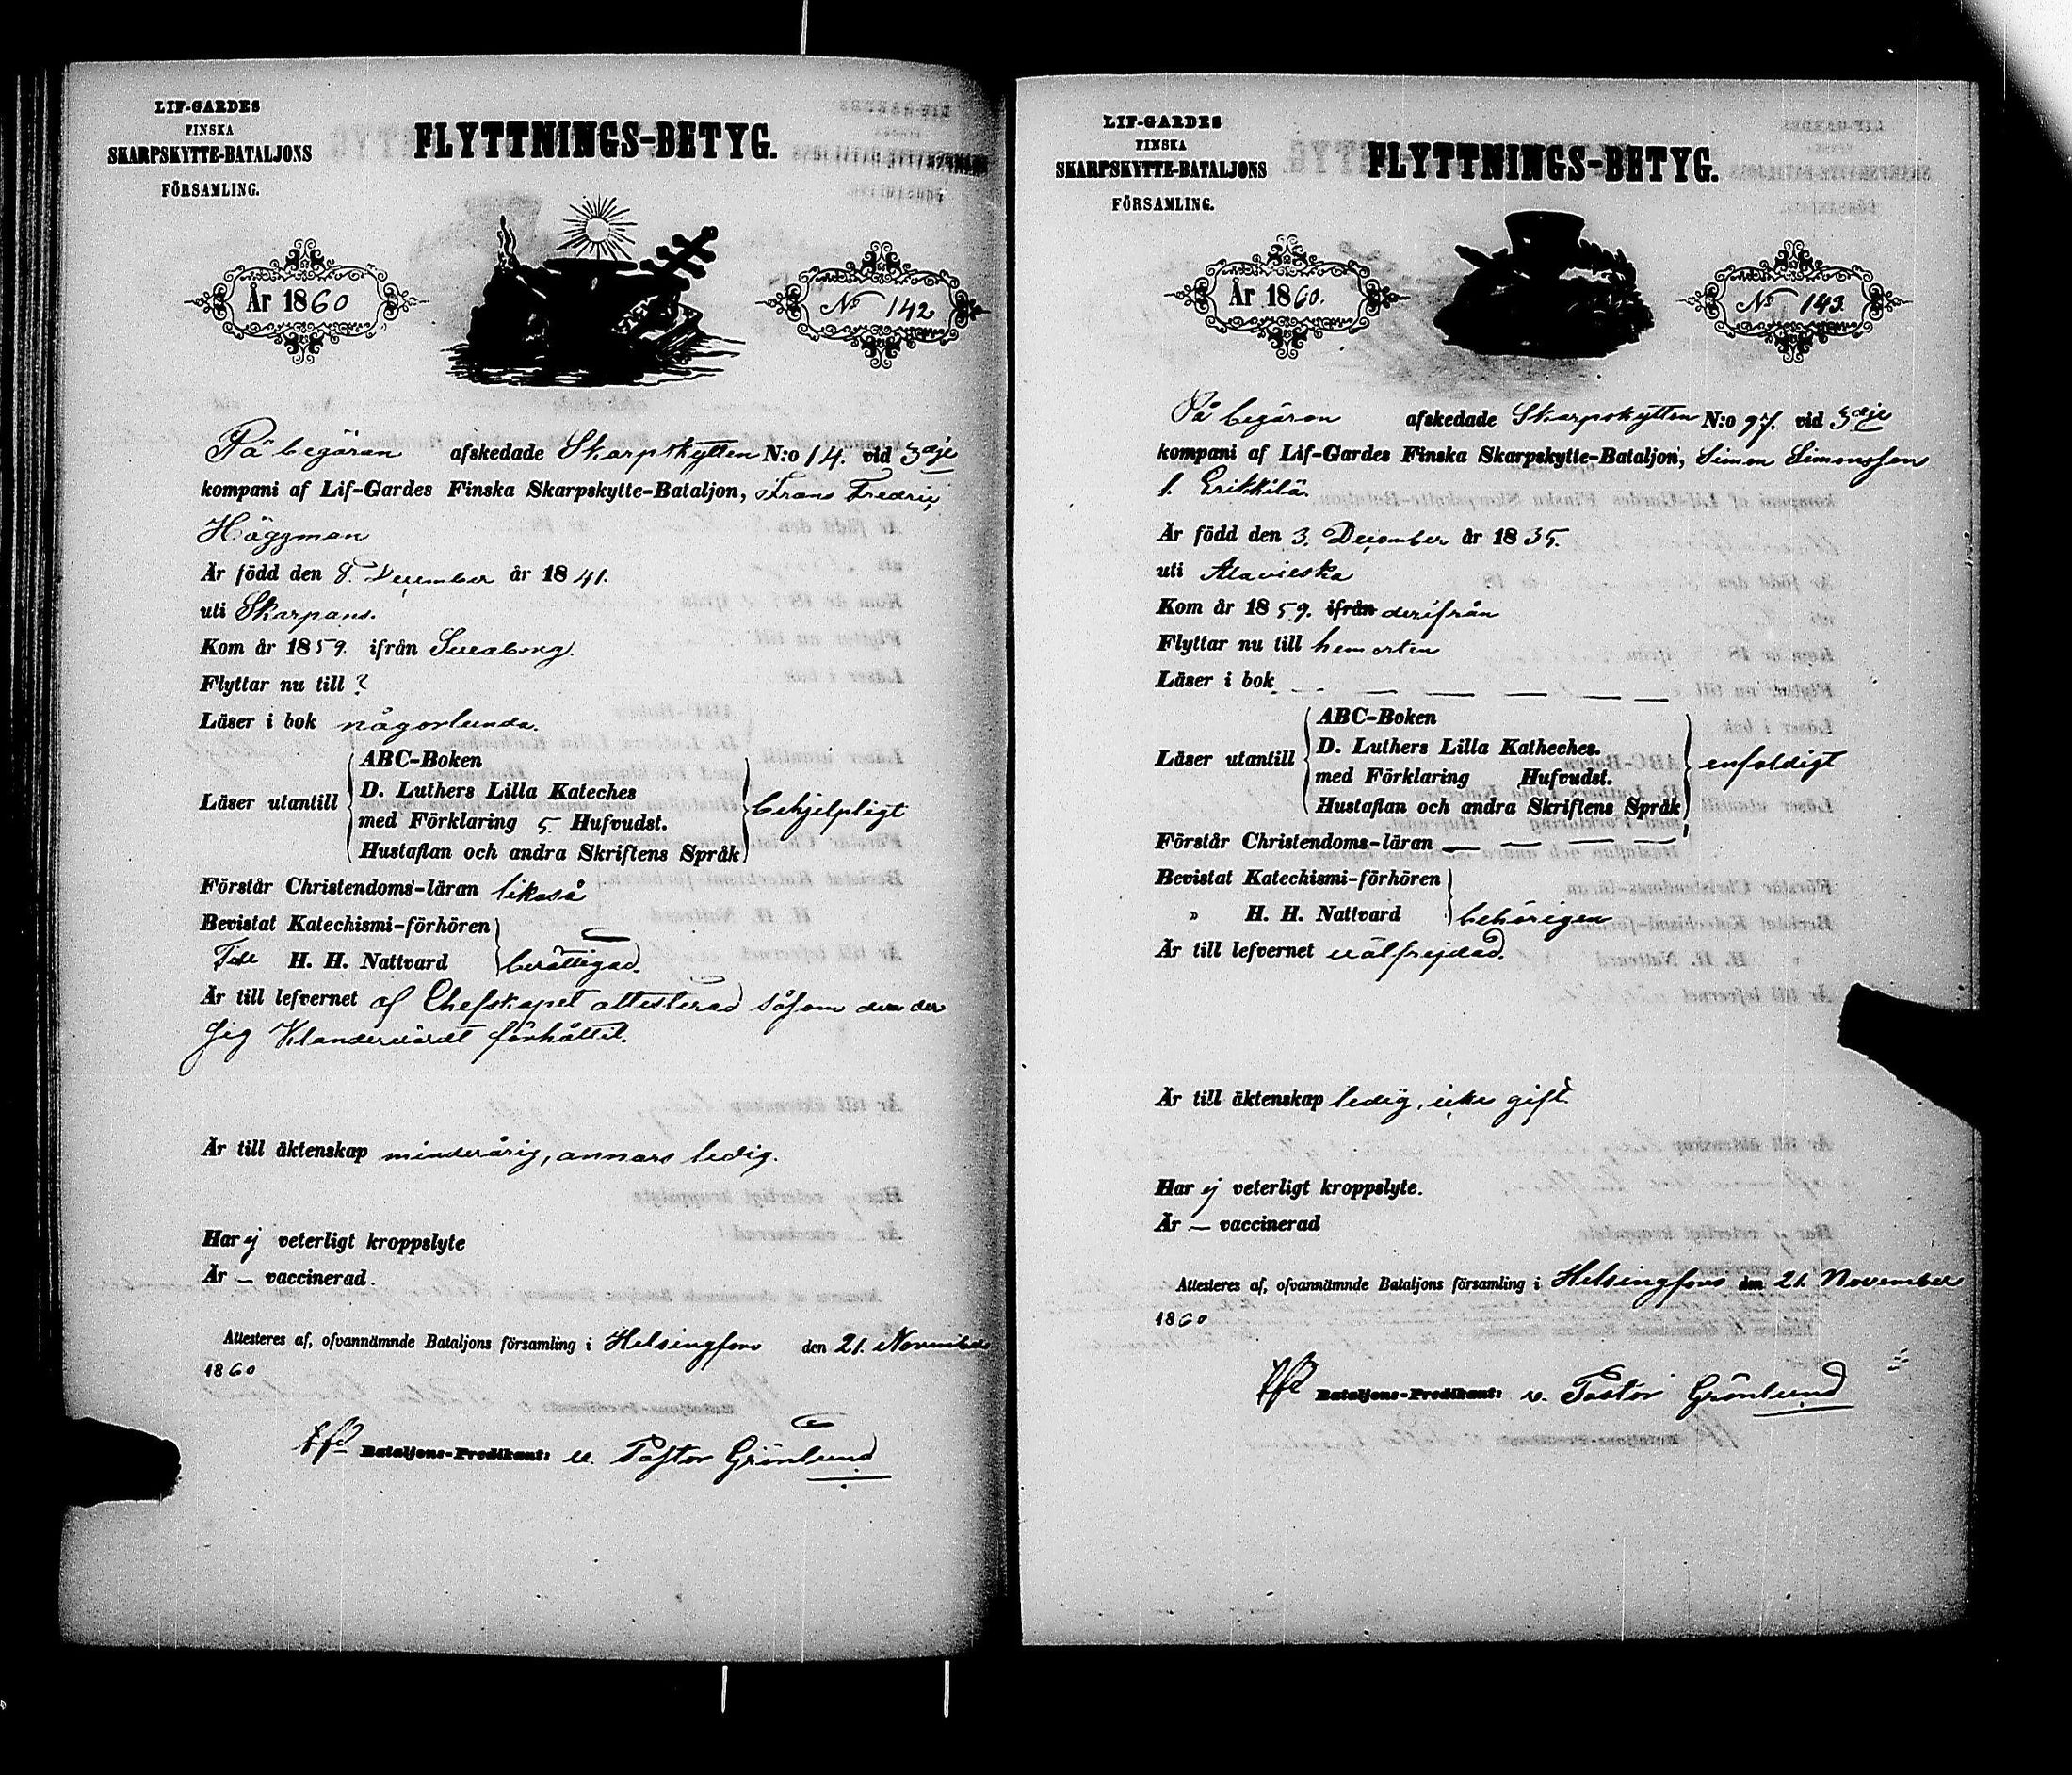 LIF-GARDES
FINSKA
SKARPSKYTTE-BATALJONS
FÖRSAMLING.
FLYTTNINGS-BETYG.
År 1860
No 142
På begäran afskedade Skarpskytten N:o 14. vid 3dje
kompani af Lif-Gardes Finska Skarpskytte-Bataljon, Frans Fredric
Häggman
Är född den 8. December år 1841.
uti Skarpans.
Kom år 1859. ifrån Sveaborg.
Flyttar nu till ?
Läser i bok någorlunda.
ABC-Boken
D. Luthers Lilla Kateches
Läser utantill
med Förklaring 5. Hufvudst.
behjelpligt
Hustaflan och andra Skriftens Språk
Förstår Christendoms-läran likaså
Bevistat Katechismi-förhören
Till H. H. Nattvard berättigad.
Är till lefvernet af Chefskapet attesterad såsom den der
sig klandervärdt förhållit.
Är till äktenskap minderårig, annars ledig.
Har ej veterligt kroppslyte
Är — vaccinerad.
Attesteres af, ofvannämnde Bataljons församling i Helsingfors den 21. November
1860
Bataljons-Predikant: v. Pastor Grönlund
LIF-GARDES
FINSKA
SKARPSKYTTE-BATALJONS
FÖRSAMLING.
FLYTTNINGS-BETYG.
År 1860.
No 143.
På begäran afskedade Skarpskytten N:o 97. vid 3dje
kompani af Lif-Gardes Finska Skarpskytte-Bataljon, Simon Simonsson
f. Erikkilä.
Är född den 3. December år 1835.
uti Alavieska
Kom år 1859. ifrån derifrån
Flyttar nu till hemorten
Läser i bok — — — — — —
ABC-Boken
D. Luthers Lilla Katheches.
Läser utantill
med Förklaring Hufvudst.
enfaldigt
Hustaflan och andra Skriftens Språk
Förstår Christendoms-läran — — — —
Bevistat Katechismi-förhören
" H. H. Nattvard behörigen
Är till lefvernet välfrejdad.
Är till äktenskap ledig, icke gift.
Har ej veterligt kroppslyte.
Är — vaccinerad
Attesteres af, ofvannämnde Bataljons församling i Helsingfors den 21. November
1860
Bataljons-Predikant: v. Pastor Grönlund